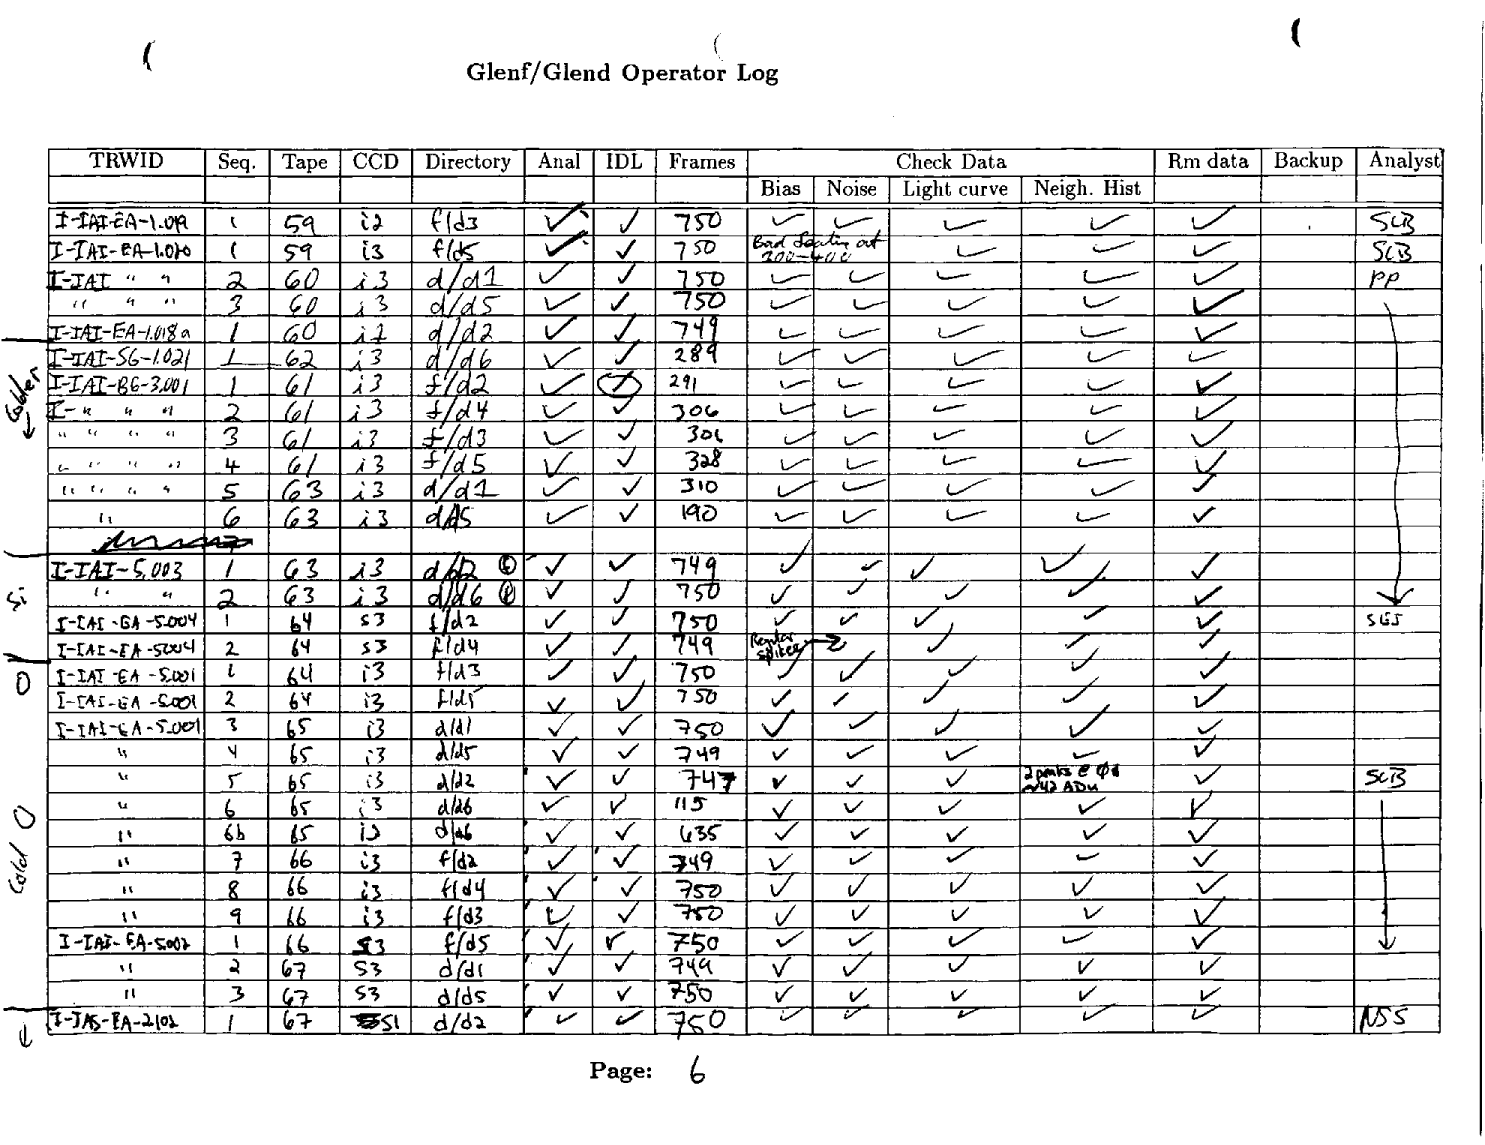 Glenf/Glend Operator Log
TRWID Seq. Tape CCD Directory Anal IDL Frames Check Data Rm data Backup Analyst
Bias Noise Light curve Neigh. Hist
I-IAI-EA-1.019 1 59 i2 f/d3 ✓ ✓ 750 ✓ ✓ ✓ ✓ ✓ SCB
I-IAI-EA-1.020 1 59 i3 f/d5 ✓ ✓ 750 Bad Seating at 300-400 ✓ ✓ ✓ SCB
I-IAI " " 2 60 i3 d/d1 ✓ ✓ 750 ✓ ✓ ✓ ✓ ✓ PP
" " " 3 60 i3 d/d5 ✓ ✓ 750 ✓ ✓ ✓ ✓ ✓
I-IAI-EA-1.018a 1 60 i2 d/d2 ✓ ✓ 749 ✓ ✓ ✓ ✓ ✓
I-IAI-SG-1.021 1 62 i3 d/d6 ✓ ✓ 289 ✓ ✓ ✓ ✓ ✓
I-IAI-BG-3.001 1 61 i3 f/d2 ✓ ✓ 291 ✓ ✓ ✓ ✓ ✓
I- " " " 2 61 i3 f/d4 ✓ ✓ 306 ✓ ✓ ✓ ✓ ✓
" " " " 3 61 i3 f/d3 ✓ ✓ 306 ✓ ✓ ✓ ✓ ✓
" " " " 4 61 i3 f/d5 ✓ ✓ 328 ✓ ✓ ✓ ✓ ✓
" " " " 5 63 i3 d/d1 ✓ ✓ 310 ✓ ✓ ✓ ✓ ✓
" 6 63 i3 d/d5 ✓ ✓ 190 ✓ ✓ ✓ ✓ ✓
I-IAI-5.003 1 63 i3 d/d2 ✓ ✓ 749 ✓ ✓ ✓ ✓ ✓
" " 2 63 i3 d/d6 ✓ ✓ 750 ✓ ✓ ✓ ✓ ✓
Si
I-IAI-EA-5.004 1 64 s3 f/d2 ✓ ✓ 750 ✓ ✓ ✓ ✓ ✓ SGJ
I-IAI-EA-5.004 2 64 s3 f/d4 ✓ ✓ 749 Regular spikes → ✓ ✓ ✓
I-IAI-EA-5.001 1 64 i3 f/d3 ✓ ✓ 750 ✓ ✓ ✓ ✓ ✓
O
I-IAI-EA-5.001 2 64 i3 f/d5 ✓ ✓ 750 ✓ ✓ ✓ ✓ ✓
I-IAI-EA-5.001 3 65 i3 d/d1 ✓ ✓ 750 ✓ ✓ ✓ ✓ ✓
" 4 65 i3 d/d5 ✓ ✓ 749 ✓ ✓ ✓ ✓ ✓
" 5 65 i3 d/d2 ✓ ✓ 747 ✓ ✓ ✓ 2 peaks @ 0 & ~42 ADU ✓ SCB
" 6 65 i3 d/d6 ✓ ✓ 115 ✓ ✓ ✓ ✓ ✓
" 6b 65 i3 d/d6 ✓ ✓ 635 ✓ ✓ ✓ ✓ ✓
Cold O
" 7 66 i3 f/d2 ✓ ✓ 749 ✓ ✓ ✓ ✓ ✓
" 8 66 i3 f/d4 ✓ ✓ 750 ✓ ✓ ✓ ✓ ✓
" 9 66 i3 f/d3 ✓ ✓ 750 ✓ ✓ ✓ ✓ ✓
I-IAI-EA-5.002 1 66 s3 f/d5 ✓ ✓ 750 ✓ ✓ ✓ ✓ ✓
" 2 67 s3 d/d1 ✓ ✓ 749 ✓ ✓ ✓ ✓ ✓
" 3 67 s3 d/d5 ✓ ✓ 750 ✓ ✓ ✓ ✓ ✓
I-IAS-EA-2.102 1 67 s1 d/d2 ✓ ✓ 750 ✓ ✓ ✓ ✓ ✓ NSS
Page: 6